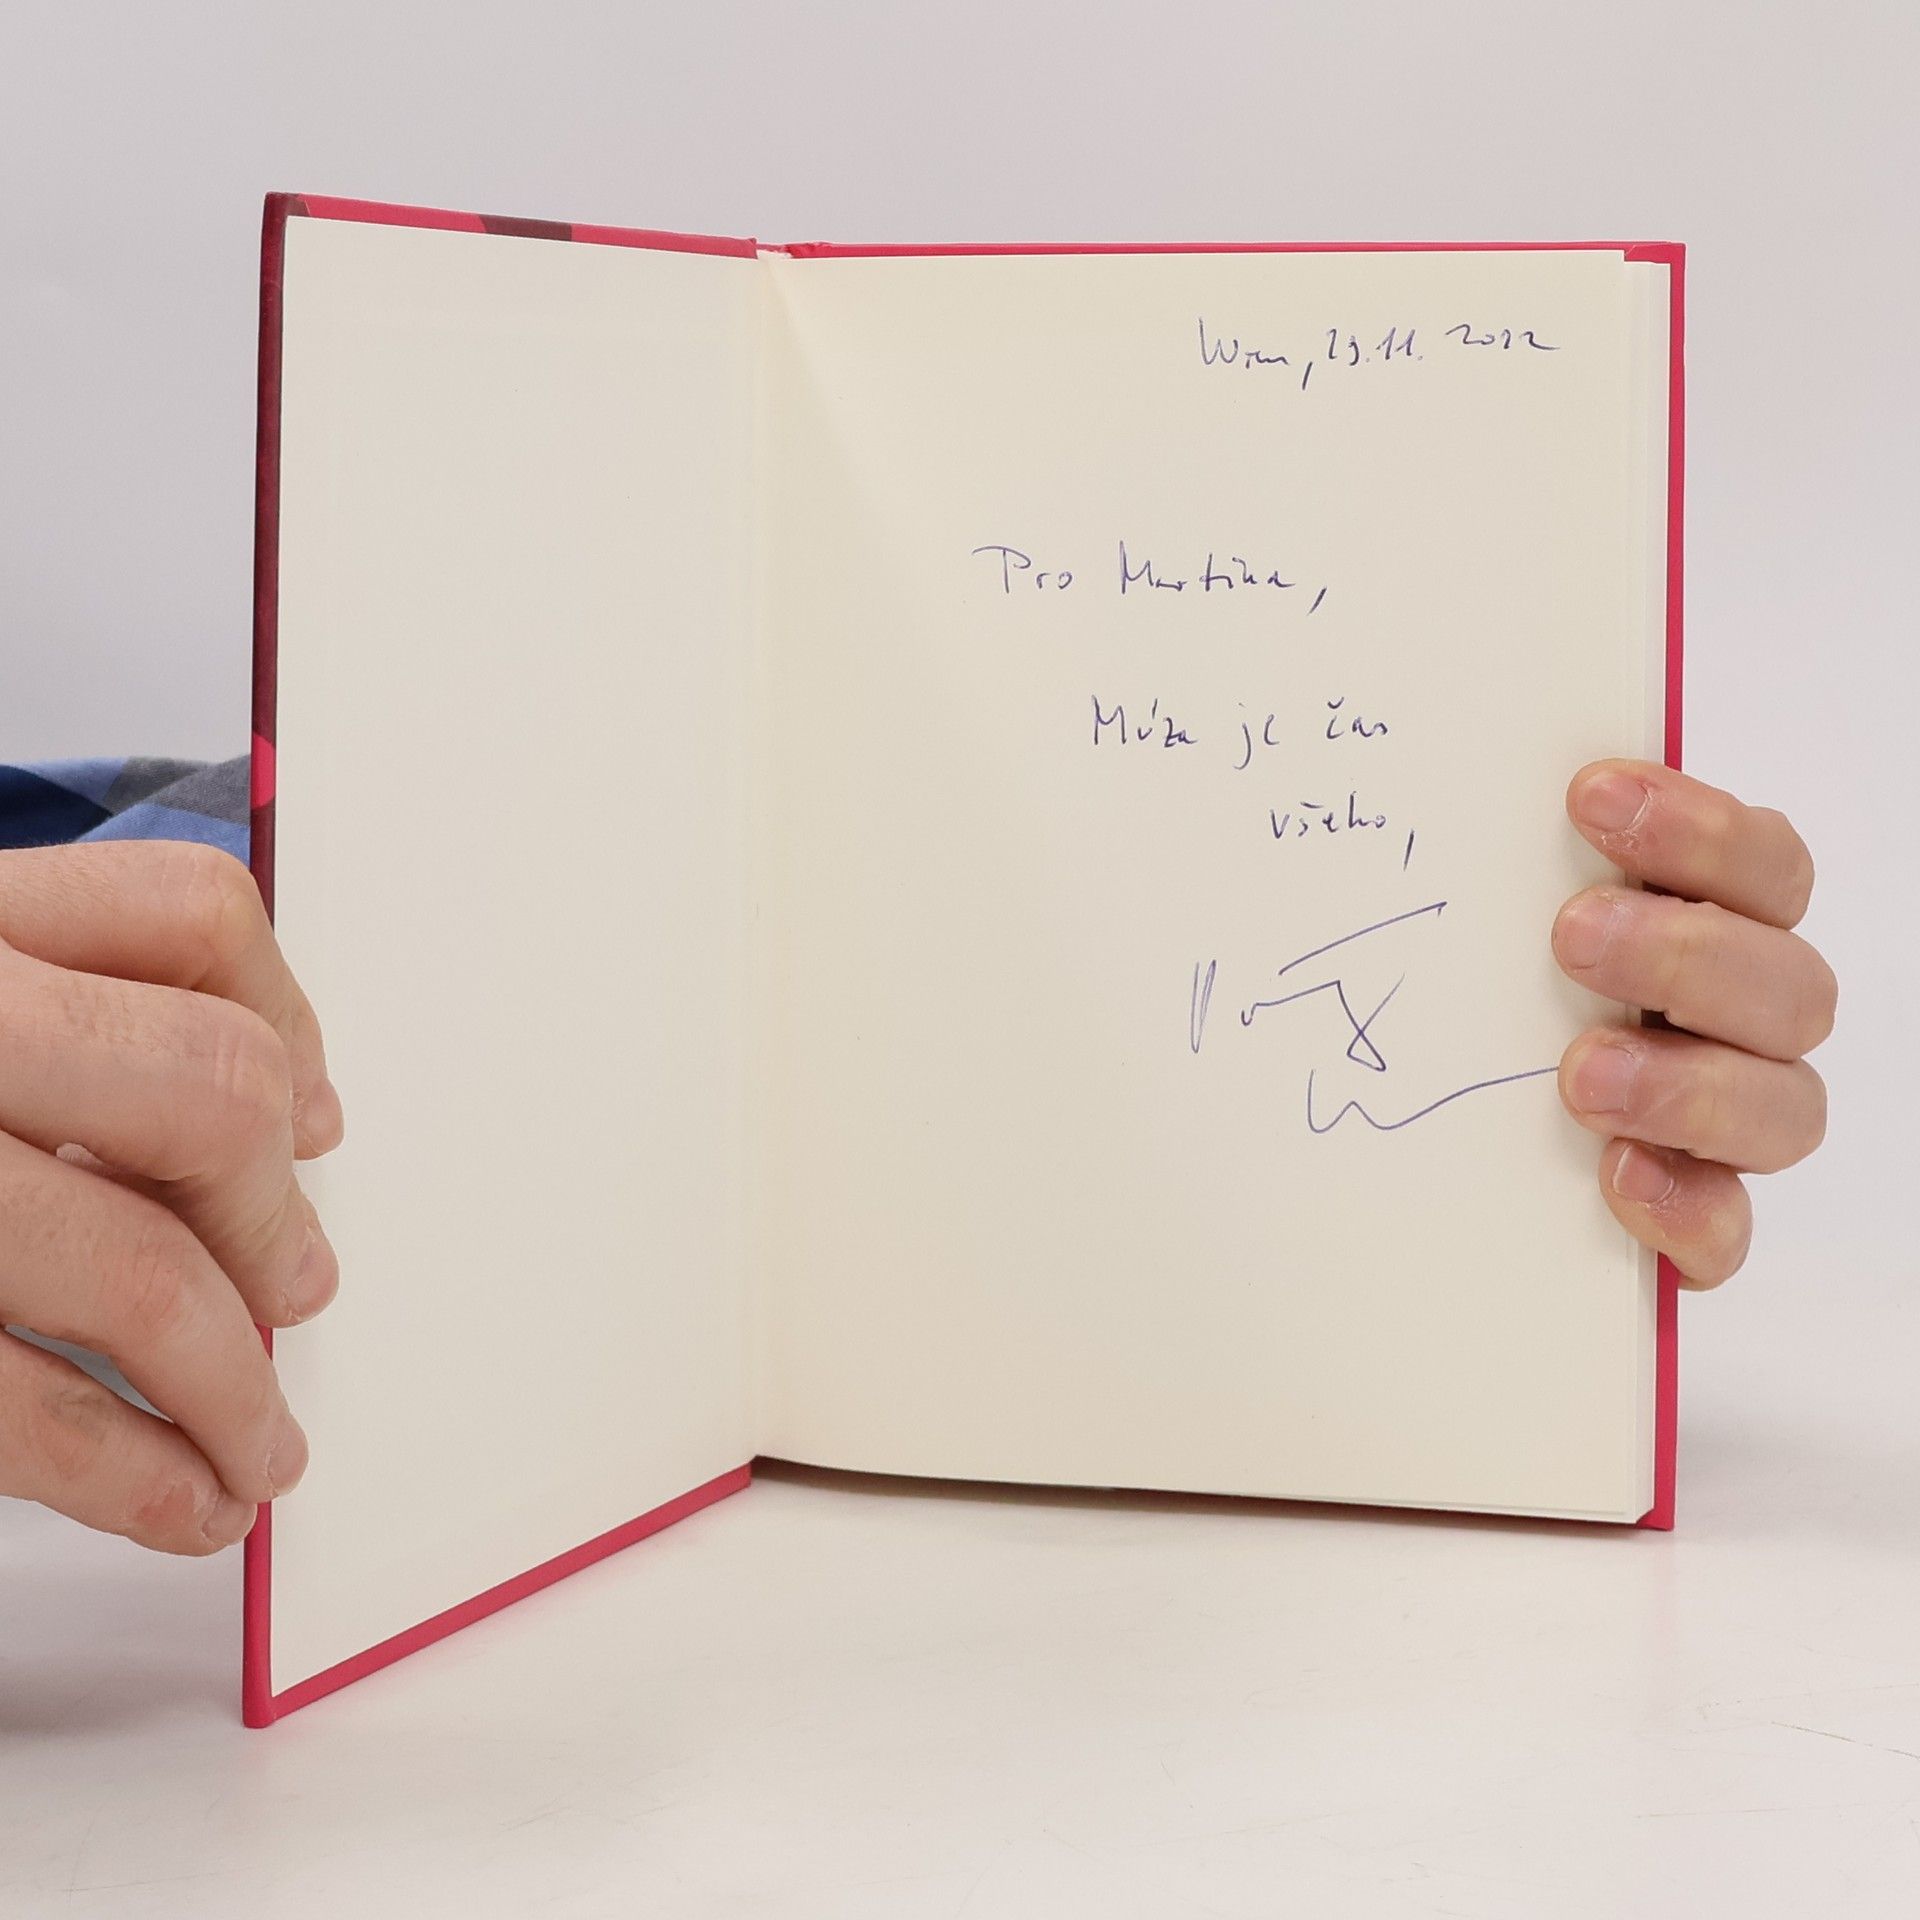 Wien, 29.11. 2022
Pro Martina,
Múza je čas
všeho,